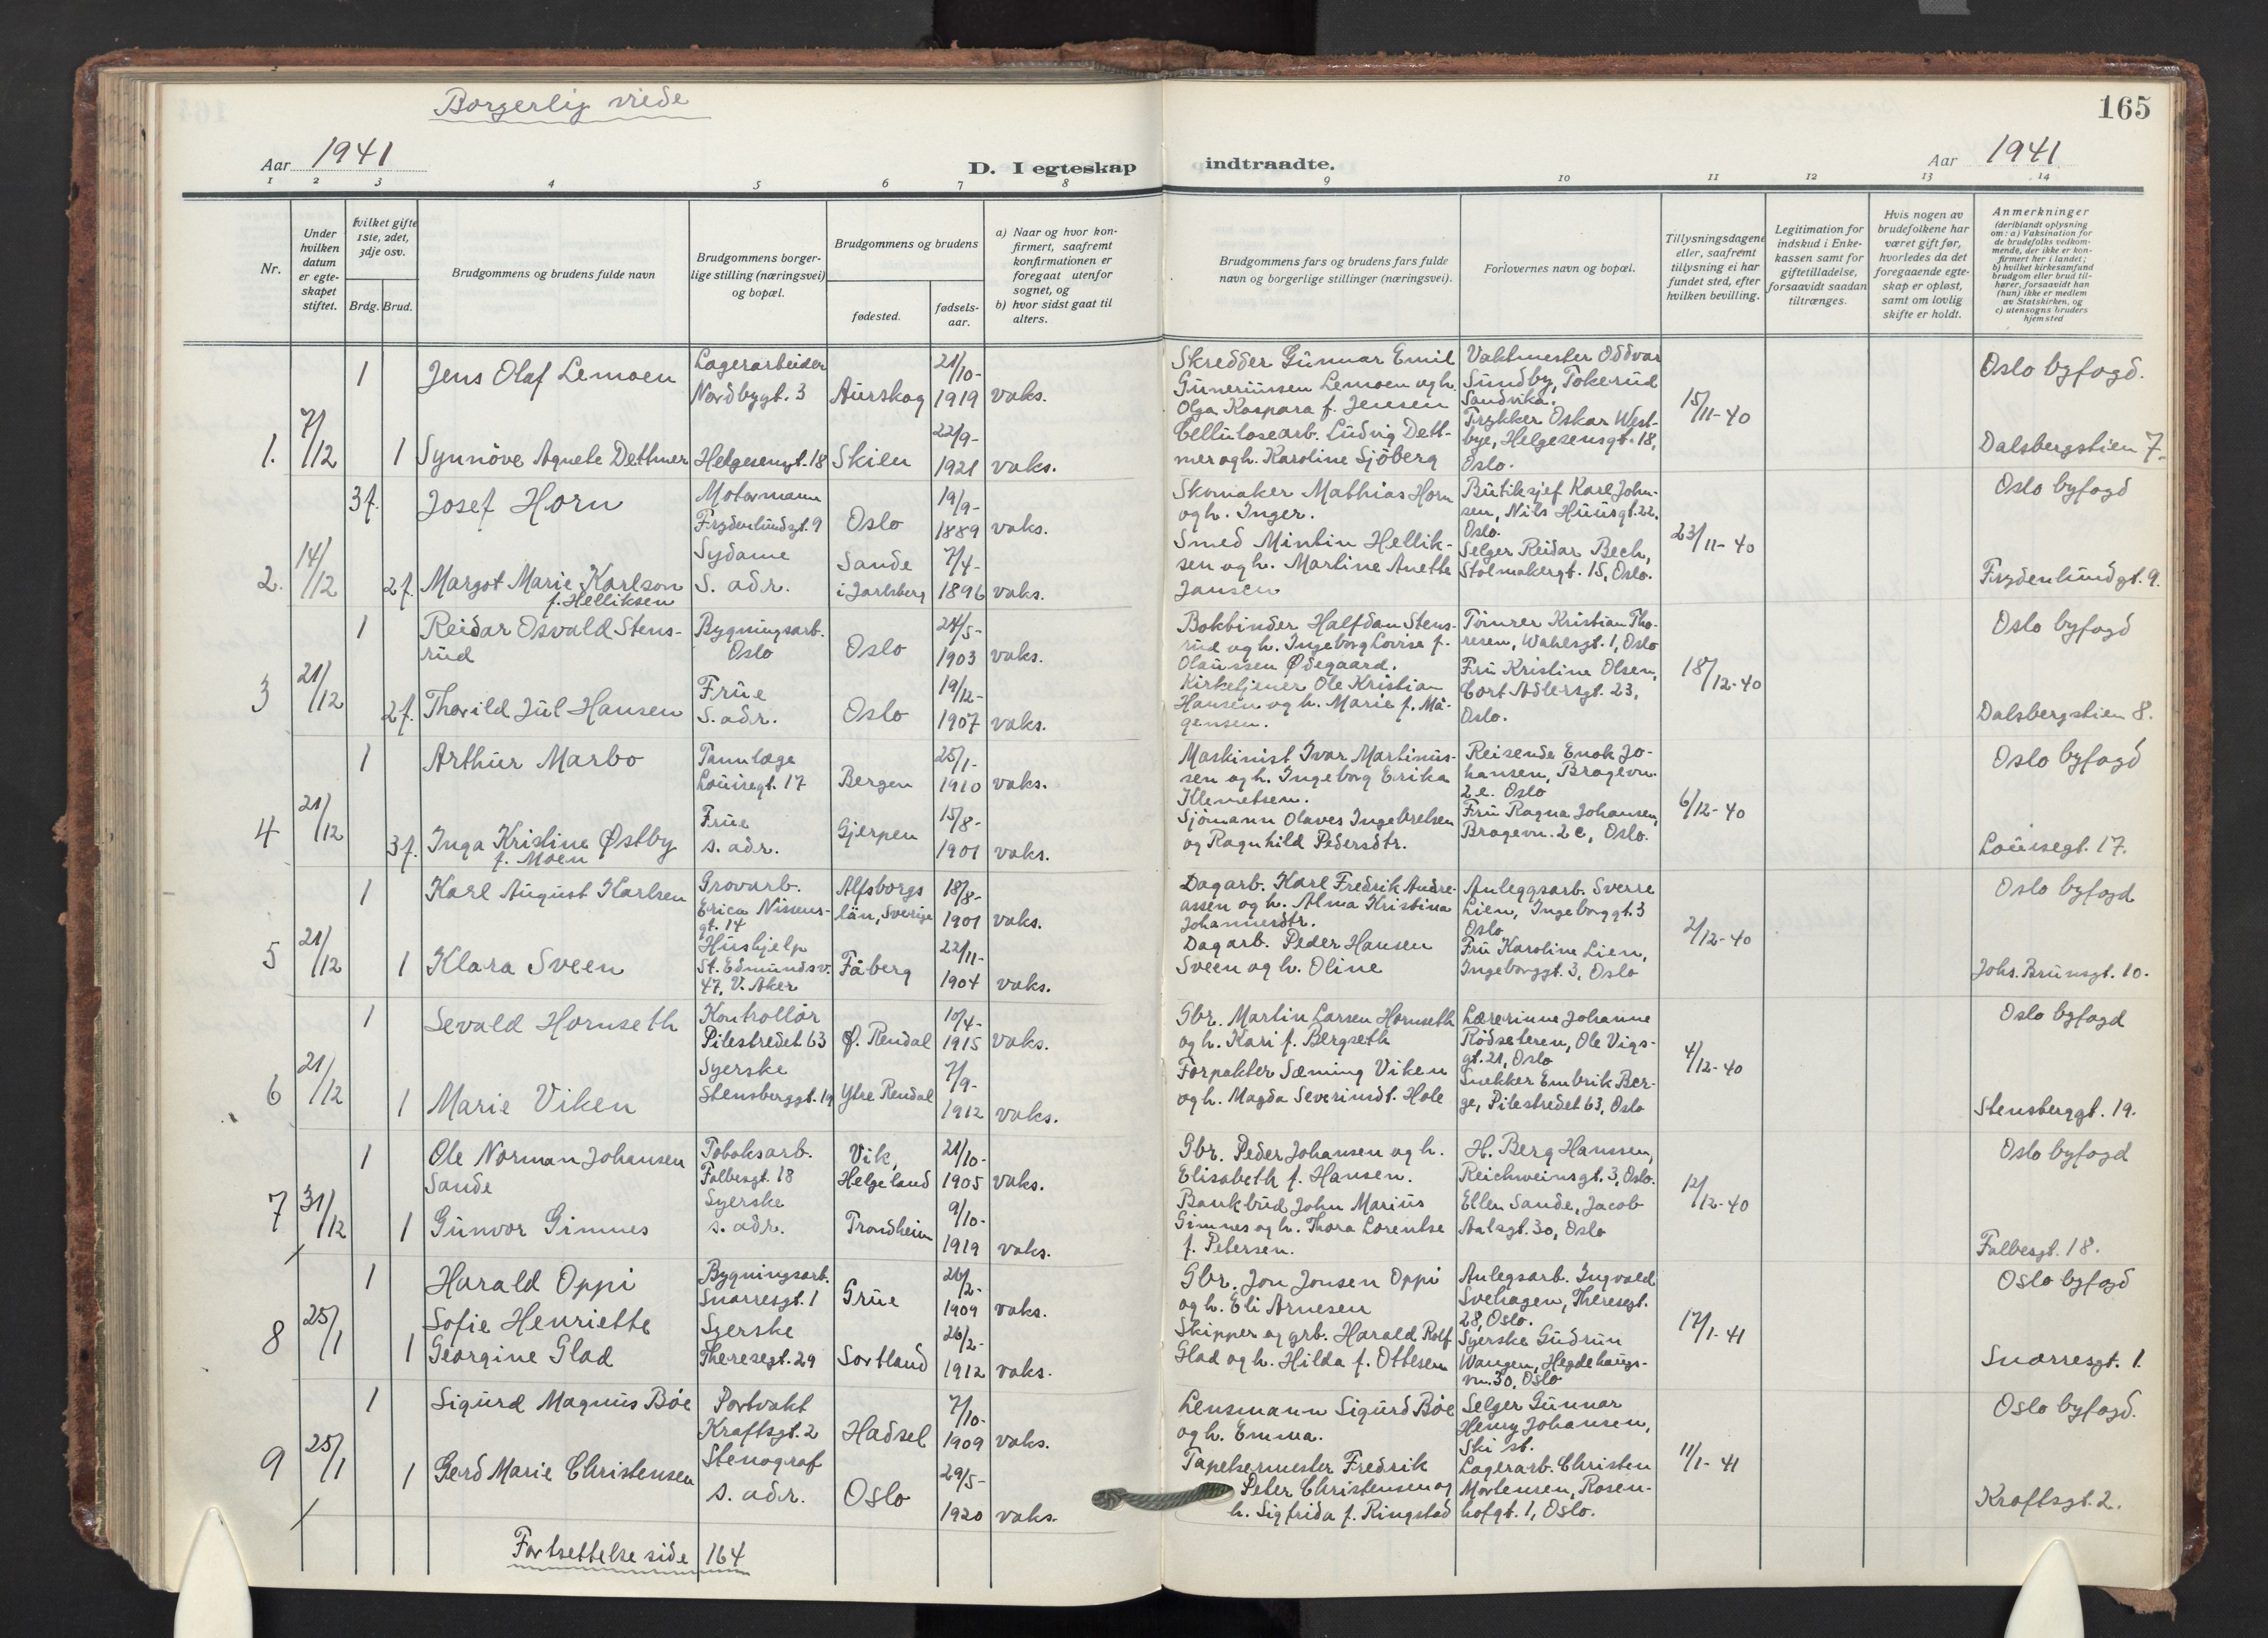 Borgerlig viede
165
Aar 1941
D. I egteskap
indtraadte.
Aar 1941
1 2 3 4 5 6 7 8 9 10 11 12 13 14
Nr.
Under
hvilken
datum
er egte-
skapet
stiftet.
Hvilket gifte
1ste, 2det,
3dje osv.
Brdg. Brud.
Brudgommens og brudens fulde navn
Brudgommens borger-
lige stilling (næringsvei)
og bopæl.
Brudgommens og brudens
fødested.
fødsels-
aar.
a) Naar og hvor kon-
firmert, saafremt
konfirmationen er
foregaat utenfor
sognet, og
b) hvor sidst gaat til
alters.
Brudgommens fars og brudens fars fulde
navn og borgerlige stillinger (næringsvei).
Forlovernes navn og bopæl.
Tillysningsdagene
eller, saafremt
tillysning ei har
fundet sted, efter
hvilken bevilling.
Legitimation for
indskud i Enke-
kassen samt for
giftetilladelse,
forsaavidt saadan
tiltrænges.
Hvis nogen av
brudefolkene har
været gift før,
hvorledes da det
foregaaende egte-
skap er opløst,
samt om lovlig
skifte er holdt.
Anmerkninger
(deriblandt oplysning
om: a) Vaksination for
de brudefolks vedkom-
mende, der ikke er kon-
firmert her i landet;
b) hvilket kirkesamfund
brudgom eller brud til-
hører, forsaavidt han
(hun) ikke er medlem
av Statskirken, og
c) utensogns bruders
hjemsted
1. 7/12
1 Jens Olaf Lemoen
Lagerarbeider
Nordbygt. 3
Aurskog
21/10-
1919
vaks.
1 Synnöve Agnete Dettmer
Helgesensgt. 18
Skien
22/9-
1921
vaks.
Skredder Gunnar Emil
Guneriussen Lemoen og h.
Olga Kaspara f. Jensen
Cellulosearb. Ludvig Dett-
mer og h. Karoline Sjöberg
Vaktmester Oddvar
Sundby, Tokerud
Sandvika.
Trykker Oskar West-
bye, Helgesensgt. 18,
Oslo.
15/11-40
Oslo byfogd.
Dalsbergstien 7.
2. 14/12
3f. Josef Horn
Motormann
Frydenlundsgt. 9
Oslo
19/9-
1889
vaks.
2f. Margot Marie Karlson
f. Helliksen
Sydame
S. adr.
Sande
i Jarlsberg
7/4-
1896
vaks.
Skomaker Mathias Horn
og h. Inger.
Smed Mintin Hellik-
sen og h. Martine Anette
Jansen
Butiksjef Karl John-
sen, Nils Huusgt. 22,
Oslo.
Selger Reidar Bech,
Stolmakergt. 15, Oslo.
23/11-40
Oslo byfogd
Frydenlundgt. 9.
3 21/12
1 Reidar Osvald Stens-
rud
Bygningsarb.
Oslo
Oslo
24/5-
1903
vaks.
2f. Thorild Jul Hansen
Frue
S. adr.
Oslo
19/12-
1907
vaks.
Bokbinder Halfdan Stens-
rud og h. Ingeborg Lovise f.
Olaussen Ødegaard.
Kirketjener Ole Kristian
Hansen og h. Marie f. Ma-
gensen.
Tömrer Kristian Tho-
resen, Wahlsgt. 1, Oslo
Fru Kristine Olsen,
Cort Adlersgt. 23,
Oslo.
18/12-40
Oslo byfogd
Dalsbergstien 8.
4 21/12
1 Arthur Marbo
Tannlæge
Louisegt. 17
Bergen
25/1-
1910
vaks.
3f. Inga Kristine Østby
f. Moen
Frue
s. adr.
Gjerpen
15/8-
1901
vaks.
Maskinist Ivar Martinus-
sen og h. Ingeborg Erika
Klemetsen.
Sjömann Olaves Ingebretsen
og Ragnhild Pedersdtr.
Reisende Enok Jo-
hansen, Bragevn.
2 e. Oslo
Fru Ragna Johansen,
Bragevn. 2 e, Oslo.
6/12-40
Oslo byfogd
Louisegt. 17.
5 21/12
1 Karl August Karlsen
Grovarb.
Erica Nissens-
gt. 14
Alfsborgs
län, Sverige
18/8-
1901
vaks.
1 Klara Sveen
Hushjelp
St. Edmundsv.
47, V. Aker
Fåberg
22/11-
1904
vaks.
Dagarb. Karl Fredrik Andre-
assen og h. Alma Kristina
Johannesdtr.
Dagarb. Peder Hansen
Sveen og h. Oline
Anleggsarb. Sverre
Lien, Ingeborggt. 3
Oslo
Fru Karoline Lien,
Ingeborggt. 3, Oslo
2/12-40
Oslo byfogd
Johs. Brunsgt. 10.
6 21/12
1 Sevald Hornseth
Kontrollör
Pilestredet 63
Ø. Rendal
10/4-
1915
vaks.
1 Marie Viken
Syerske
Stensberggt. 19
Ytre Rendal
7/9-
1912
vaks.
Gbr. Martin Larsen Hornseth
og h. Kari f. Bergseth
Forpakter Sæming Viken
og h. Magda Severinsdt. Hole
Lærerinne Johanne
Rödseteren, Ole Vigs-
gt. 21, Oslo
Snekker Embrik Ber-
ge, Pilestredet 63, Oslo
4/12-40
Oslo byfogd
Stensberggt. 19.
7 31/12
1 Ole Norman Johansen
Sande
Tobaksarb.
Falbesgt. 18
Vik,
Helgeland
21/10-
1905
vaks.
1 Gunvor Gimnes
Syerske
s. adr.
Trondheim
9/10-
1919
vaks.
Gbr. Peder Johansen og h.
Elisabeth f. Hansen.
Bankbud John Marius
Gimnes og h. Thora Lorentse
f. Petersen.
H. Berg Hanssen,
Reichweinsgt. 3, Oslo.
Ellen Sande, Jacob
Aalsgt. 30, Oslo
12/12-40
Oslo byfogd
Falbesgt. 18.
8 25/1
1 Harald Oppi
Bygningsarb.
Snorresgt. 1
Grue
26/2-
1909
vaks.
Sofie Henriette
1 Georgine Glad
Syerske
Theresegt. 29
Sortland
26/2-
1912
vaks.
Gbr. Jon Jonsen Oppi
og h. Eli Arnesen
Skipper og grb. Harald Rolf
Glad og h. Hilda f. Ottesen
Anlegsarb. Ingvald
Svehagen, Theresegt.
28, Oslo.
Syerske Gudrun
Wangen, Hegdehaugs-
vn. 30, Oslo
17/1-41
Oslo byfogd
Snorresgt. 1.
9 25/1
1 Sigurd Magnus Böe
Portvakt
Kraftsgt. 2
Hadsel
7/10-
1909
vaks.
1 Gerd Marie Christensen
Stenograf
s. adr.
Oslo
29/5-
1920
vaks.
Lensmann Sigurd Böe
og h. Emma.
Tapetsermester Fredrik
Peter Christensen og
h. Sigfrida f. Ringstad
Selger Gunnar
Henry Johansen,
Ski st.
Lagerarb. Christen
Mortensen, Rosen-
hofgt. 1, Oslo.
11/1-41
Oslo byfogd.
Kraftsgt. 2.
Fortsettelse side 164